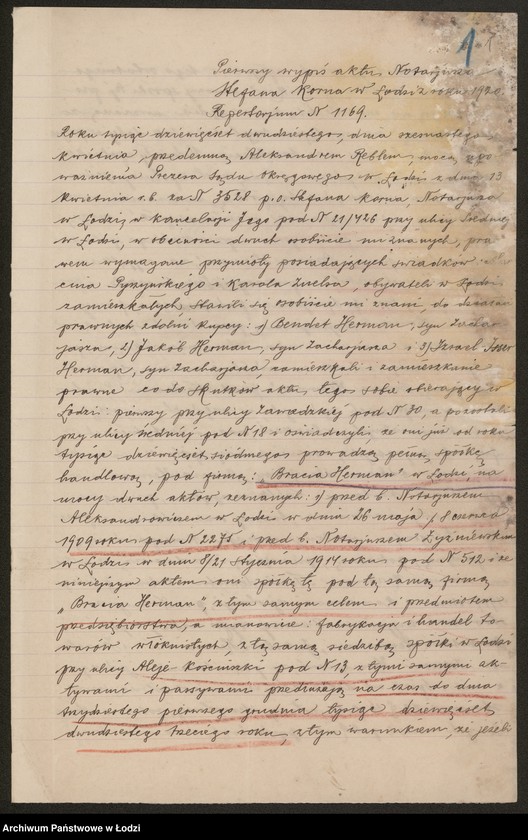 1
Pierwszy wypis aktu Notarjusza
Stefana Korna w Łodzi z roku 1920.
Repertorjum N 1169.
Roku tysiąc dziewięćset dwudziestego, dnia szesnastego
kwietnia, przedemną Aleksandrem Reblem, mocą upo
ważnienia Prezesa Sądu Okręgowego w Łodzi z dnia 13
kwietnia r.b. za N 3628 p.o. Stefana Korna, Notarjusza
w Łodzi, w kancelarji Jego pod N 21/426 przy ulicy Średniej
w Łodzi, w obecności dwuch osobiście mi znanych, pra
wem wymagane przymioty posiadających świadków
Pyszyńskiego i Karola, obywateli w Łodzi
zamieszkałych, stawili się osobiście mi znani, do działań
prawnych zdolni kupcy: 1) Bendet Herman, syn Zachar
jasza, 2) Jakób Herman, syn Zacharjasza i 3) Izrael-Josek
Herman, syn Zacharjasza, zamieszkali i zamieszkanie
prawne co do skutków aktu tego sobie obierający w
Łodzi: pierwszy przy ulicy Zawadzkiej pod N 30, a pozostali
przy ulicy Średniej pod N 18 i oświadczyli, że oni już od roku
tysiąc dziewięćset siódmego prowadzą pewną spółkę
handlową, pod firmą: "Bracia Herman" w Łodzi, na
mocy dwuch aktów, zeznanych: 1) przed b. Notarjuszem
Aleksandrowiczem w Łodzi w dniu 26 maja / 8 czerwca
1909 roku pod N 2271 i przed b. Notarjuszem Żyżniewskim
w Łodzi w dniu 8/21 stycznia 1914 roku pod N 512 i że
niniejszym aktem oni spółkę tę pod tą samą firmą
"Bracia Herman", z tym samym celem i przedmiotem
przedsiębiorstwa, a mianowicie: fabrykacja i handel to
warów włóknistych, z tą samą siedzibą spółki w Łodzi
przy ulicy Aleje Kościuszki pod N 13, z tymi samymi ak
tywami i pasywami przedłużają na czas do dnia
trzydziestego pierwszego grudnia tysiąc dziewięćset
dwudziestego trzeciego roku, z tym warunkiem, że jeżeli
Archiwum Państwowe w Łodzi